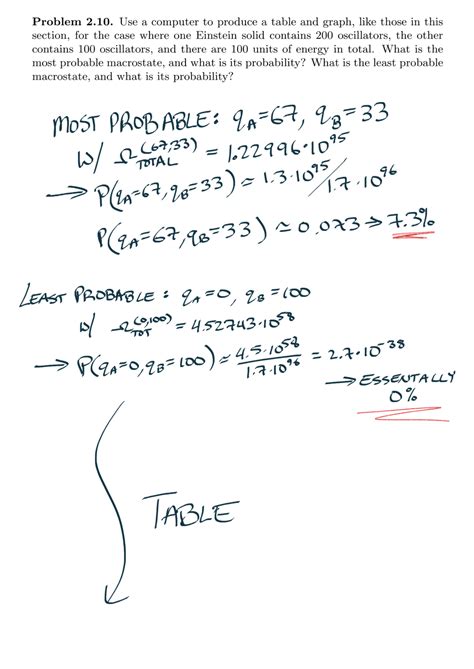 Problem 2.10. Use a computer to produce a table and graph, like those in this
section, for the case where one Einstein solid contains 200 oscillators, the other
contains 100 oscillators, and there are 100 units of energy in total. What is the
most probable macrostate, and what is its probability? What is the least probable
macrostate, and what is its probability?
MOST PROBABLE: q_A=67, q_B=33
W/ Ω_TOTAL^(67,33) = 1.22996·10^95
→ P(q_A=67, q_B=33) ≈ 1.3·10^95/1.7·10^96
P(q_A=67, q_B=33) ≃ 0.073 ⇒ 7.3%
LEAST PROBABLE: q_A=0, q_B=100
W/ Ω_TOT^(0,100) = 4.52743·10^58
→ P(q_A=0, q_B=100) ≃ 4.5·10^58/1.7·10^96 = 2.7·10^-38
→ ESSENTALLY
0%
TABLE